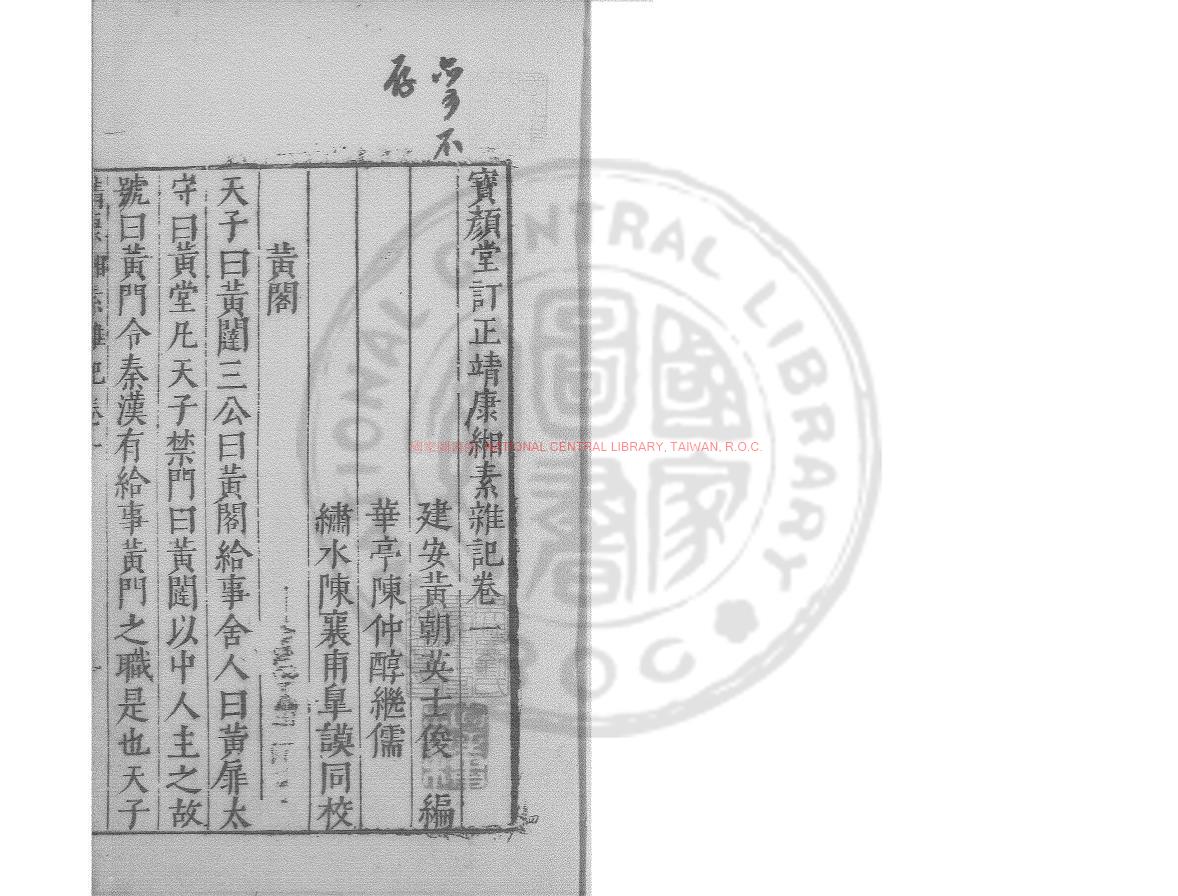 寶顏堂訂正靖康緗素雜記卷一
建安黃朝英士俊 編
華亭陳仲醇繼儒
繡水陳襄甫皐謨同校
黃閣
天子曰黃闥三公曰黃閣給事舍人曰黃扉太
守曰黃堂凡天子禁門曰黃闥以中人主之故
號曰黃門令秦漢有給事黃門之職是也天子
不
存
NATIONAL CENTRAL LIBRARY, TAIWAN, R.O.C.
NATIONAL CENTRAL LIBRARY
ROC
國家圖書館